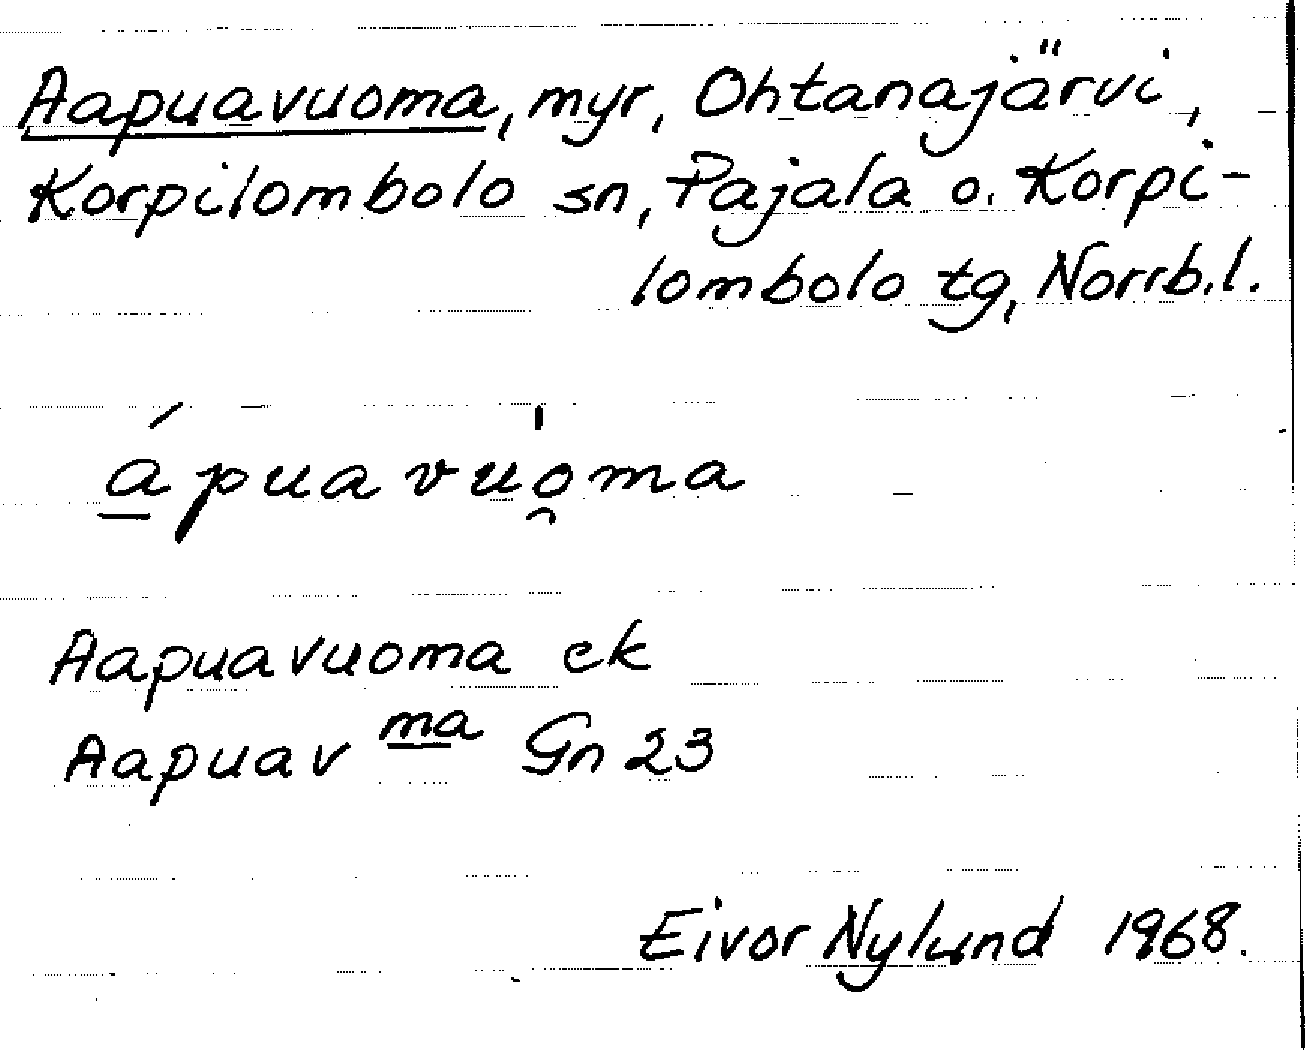 Aapuavuoma, myr, Ohtanajärvi,
Korpilombolo sn, Pajala o. Korpi-
lombolo tg, Norrb.l.
á̱puavu̍o̯ma
Aapuavuoma ek
Aapuav ma Gn 23
Eivor Nylund 1968.